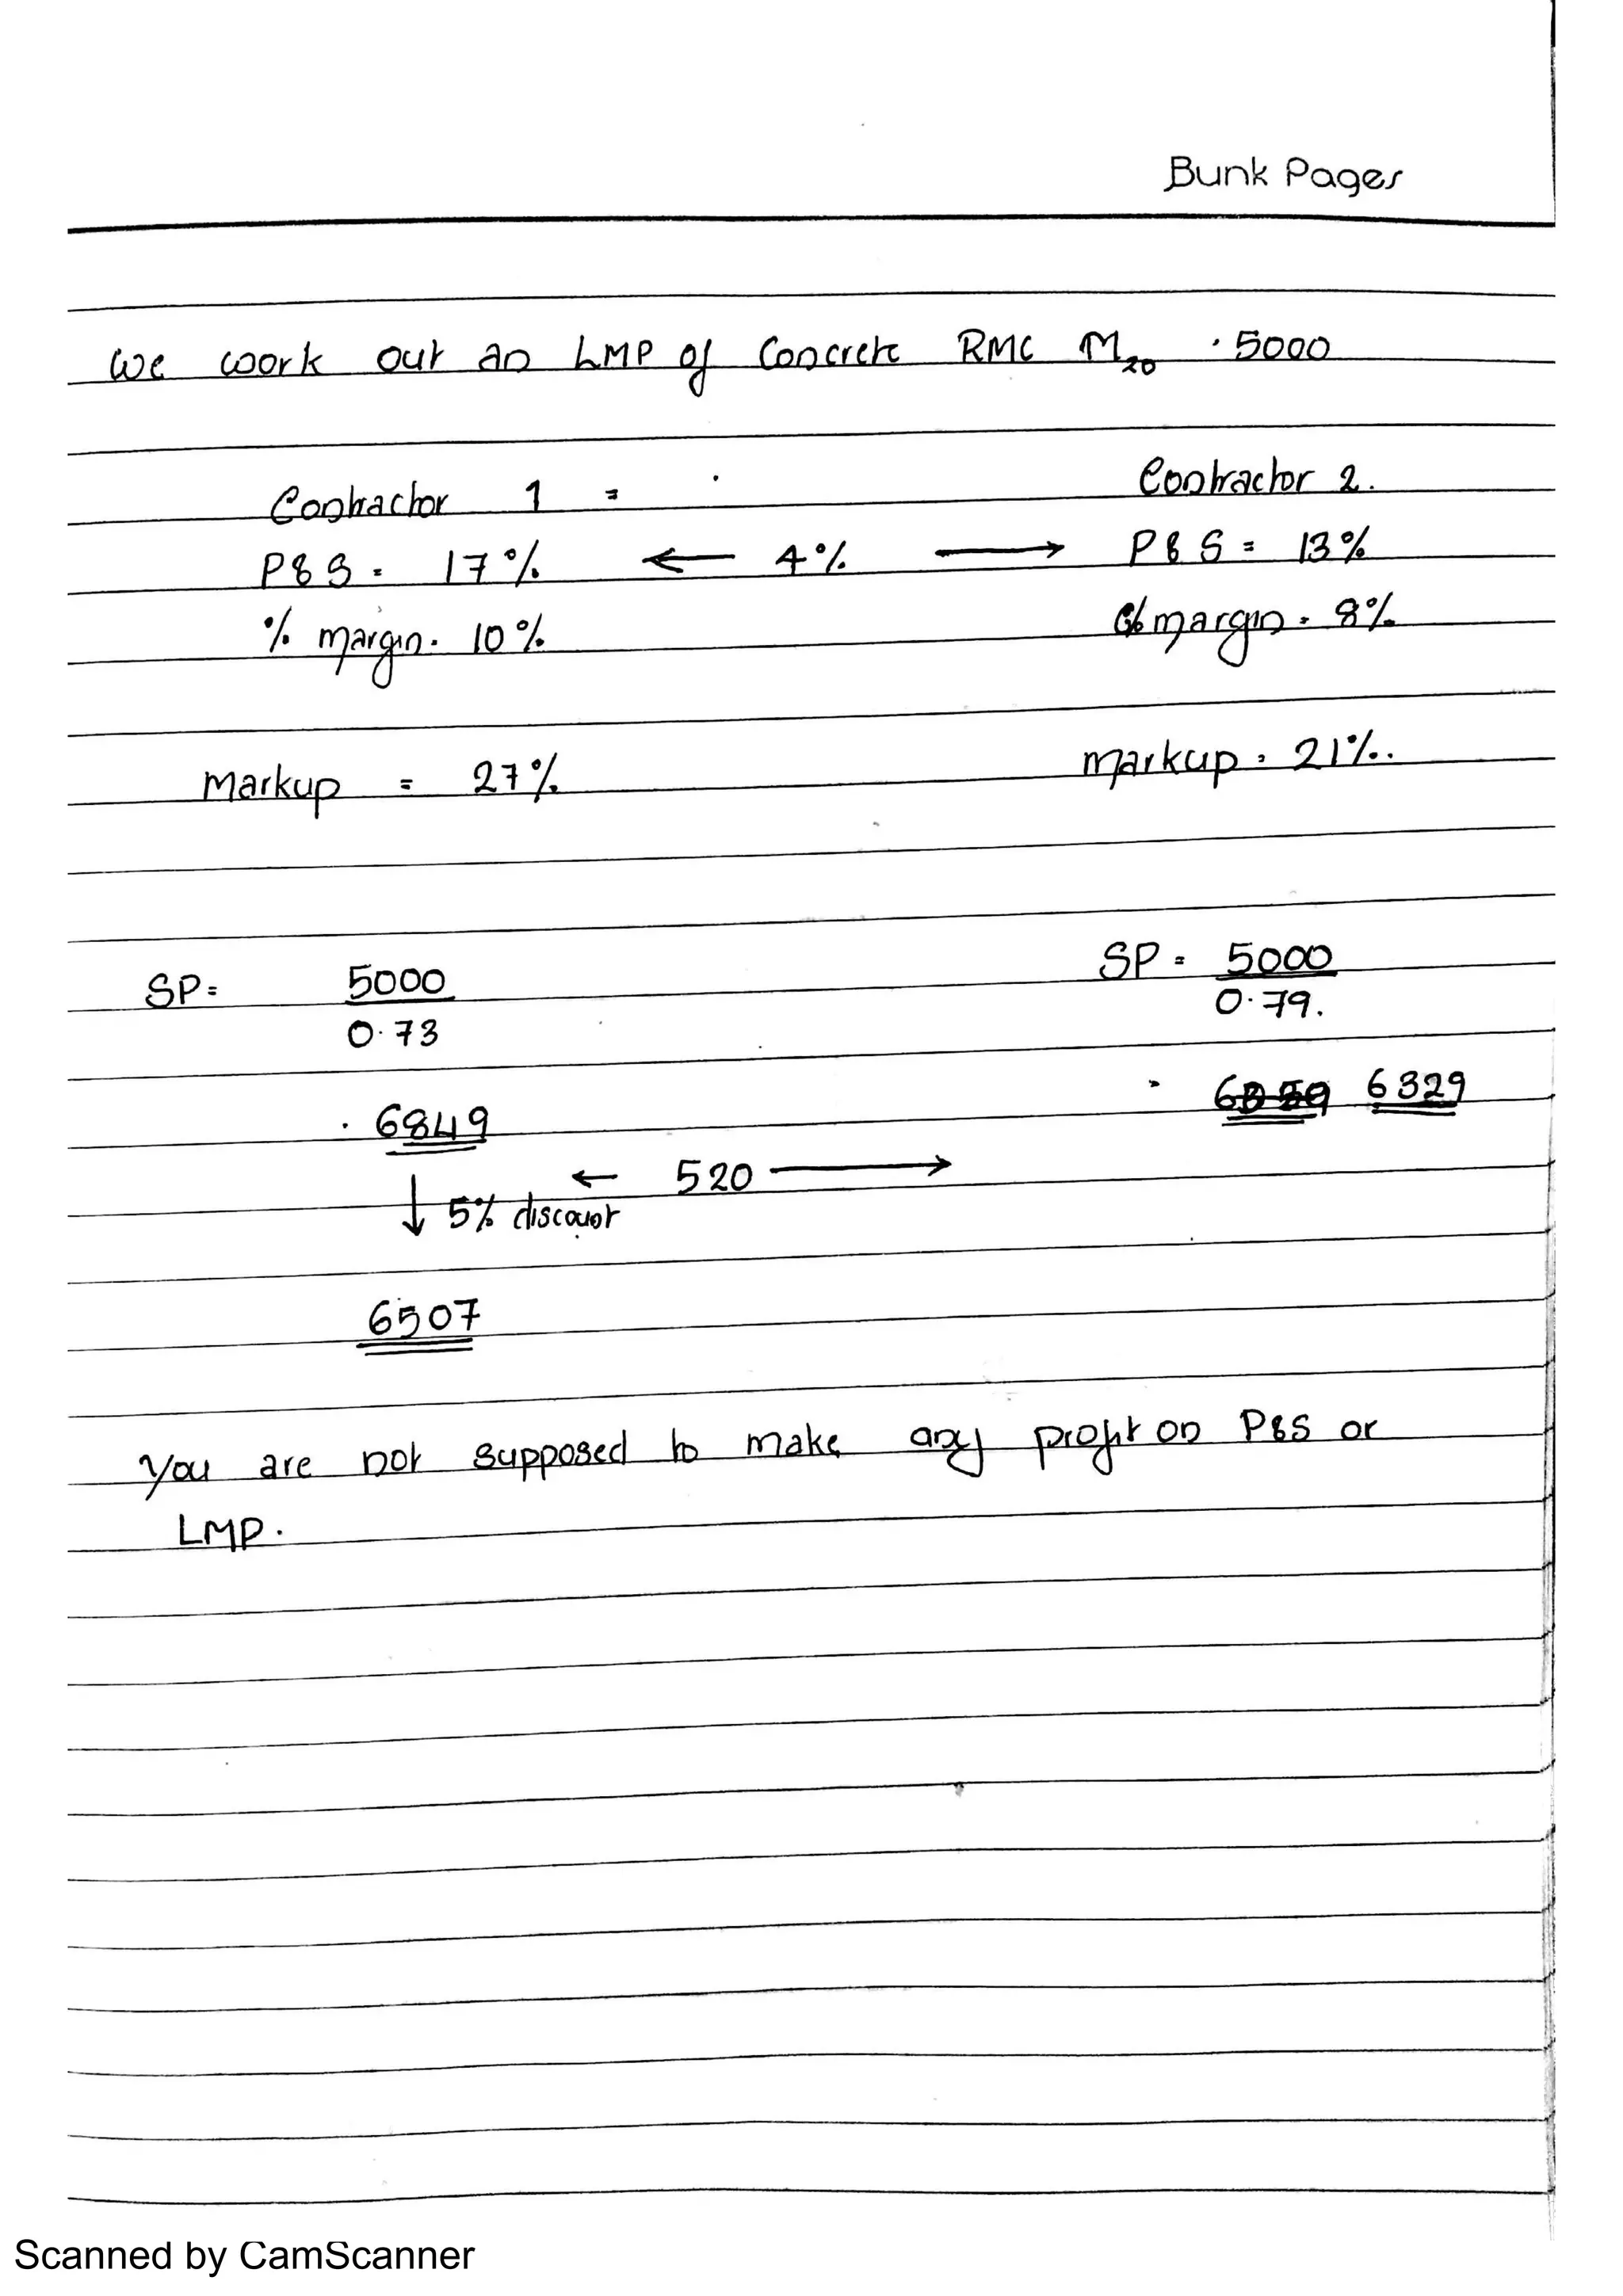 Bunk Pages
We work out an LMP of Concrete RMC M20 . 5000
Contractor 1 =
Contractor 2.
P&S = 17% ← 4% → P&S = 13%
% margin = 10%
% margin = 8%
Markup = 27%
markup = 21%.
SP = 5000
0.73
SP = 5000
0.79.
= 6849
= 6329
← 520 →
↓ 5% discount
6507
You are not supposed to make any profit on P&S or
LMP.
Scanned by CamScanner